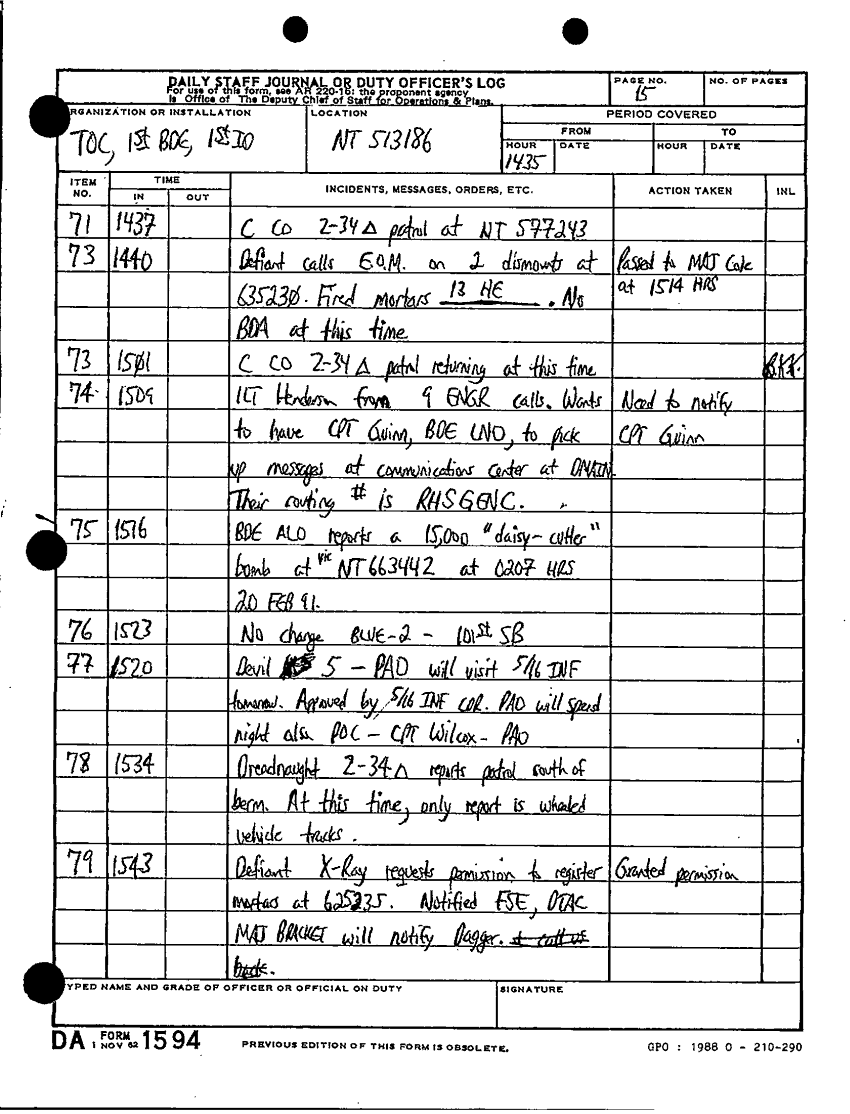 DAILY STAFF JOURNAL OR DUTY OFFICER'S LOG
For use of this form, see AR 220-15; the proponent agency
is Office of The Deputy Chief of Staff for Operations & Plans.
PAGE NO.
15
NO. OF PAGES
RGANIZATION OR INSTALLATION
TOC, 1st BDE, 1st ID
LOCATION
NT 513186
PERIOD COVERED
FROM
TO
HOUR
1435
DATE
HOUR
DATE
ITEM NO.
TIME
IN
OUT
INCIDENTS, MESSAGES, ORDERS, ETC.
ACTION TAKEN
INL
71 1437 C CO 2-34 Δ patrol at NT 577243
73 1440 Defiant calls E.O.M. on 2 dismounts at Passed to MAJ Cole
635230. Fired mortars 13 HE. No at 1514 HRS
BDA at this time
73 1501 C CO 2-34 Δ patrol returning at this time
74 1509 1LT Henderson from 9 ENGR calls. Wants Need to notify
to have CPT Guinn, BDE LNO, to pick CPT Guinn
up messages at communications center at DMAIN.
Their routing # is RHSGENC.
75 1516 BDE ALO reports a 15,000 "daisy-cutter"
bomb at vic NT 663442 at 0207 HRS
20 FEB 91.
76 1523 No change BLUE-2 - 101st SB
77 1520 Devil 5 - PAO will visit 5/16 INF
tomorrow. Approved by 5/16 INF CDR. PAO will spend
night also POC - CPT Wilcox - PAO
78 1534 Dreadnaught 2-34 Δ reports patrol south of
berm. At this time, only report is wheeled
vehicle tracks.
79 1543 Defiant X-Ray requests permission to register Granted permission
mortars at 625235. Notified FSE, DTAC
MAJ BRACKET will notify Dagger. & call us
back.
YPED NAME AND GRADE OF OFFICER OR OFFICIAL ON DUTY
SIGNATURE
DA FORM 1 NOV 62 1594
PREVIOUS EDITION OF THIS FORM IS OBSOLETE.
GPO : 1988 O - 210-290